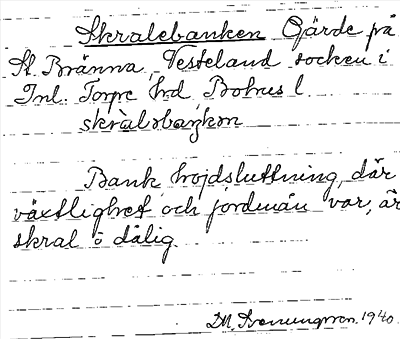 Skralebanken Gärde på
St. Bränna, Vesteland socken i
Inl. Torpe hrd Bohus l.
skràləbaŋkən
Bank, höjdsluttning, där
växtlighet och jordmån var, är
skral o dålig.
1940.